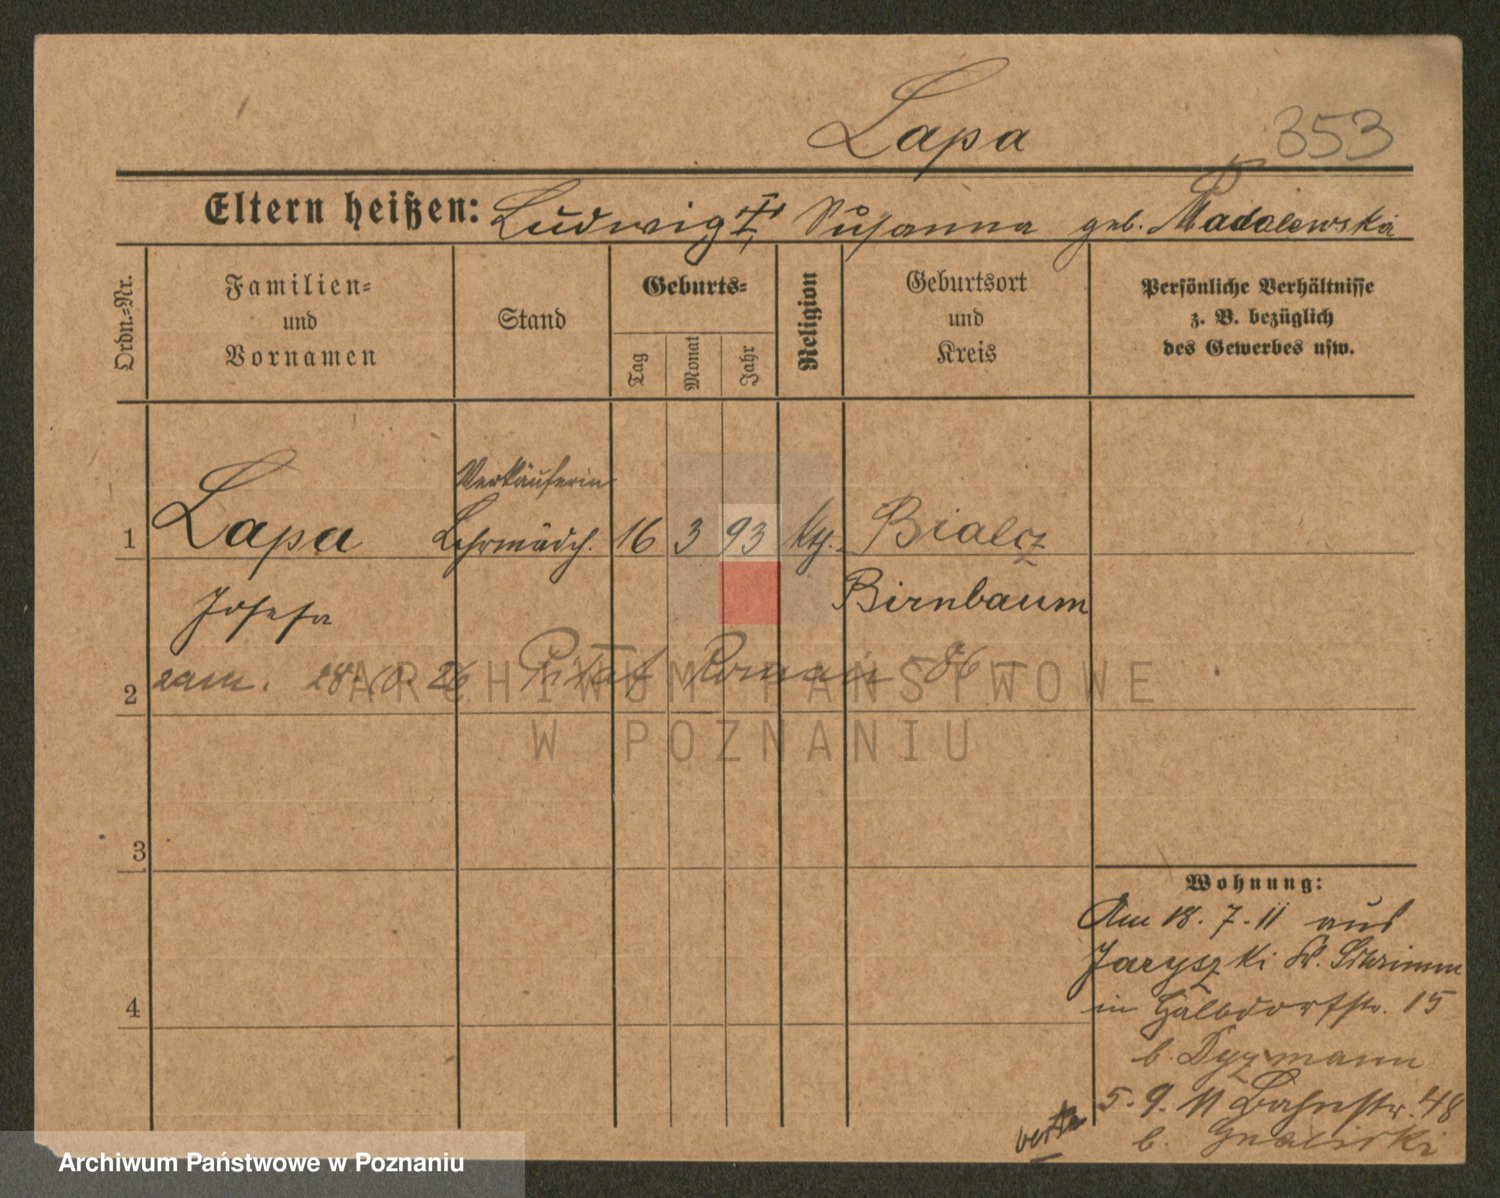 Lapa 353
Eltern heißen: Ludwig u. Susanna geb. Madalewska
Ordn.-Nr.
Familien-
und
Vornamen
Stand
Geburts-
Tag
Monat
Jahr
Religion
Geburtsort
und
Kreis
Persönliche Verhältnisse
z. B. bezüglich
des Gewerbes usw.
Verkäuferin
1 Lapa Lehrmädch. 16 3 93 kth. Bialcz
Josefa Birnbaum
2 zam. 28.10.26 Roman 86
ARCHIWUM PAŃSTWOWE
W POZNANIU
3
Wohnung:
Am 18.7.11 aus
Jaryszki Kr. Schrimm
4
in Halbdorfstr. 15
b. Dyzmann
5.9.11 Bahnstr. 48
b.
Archiwum Państwowe w Poznaniu